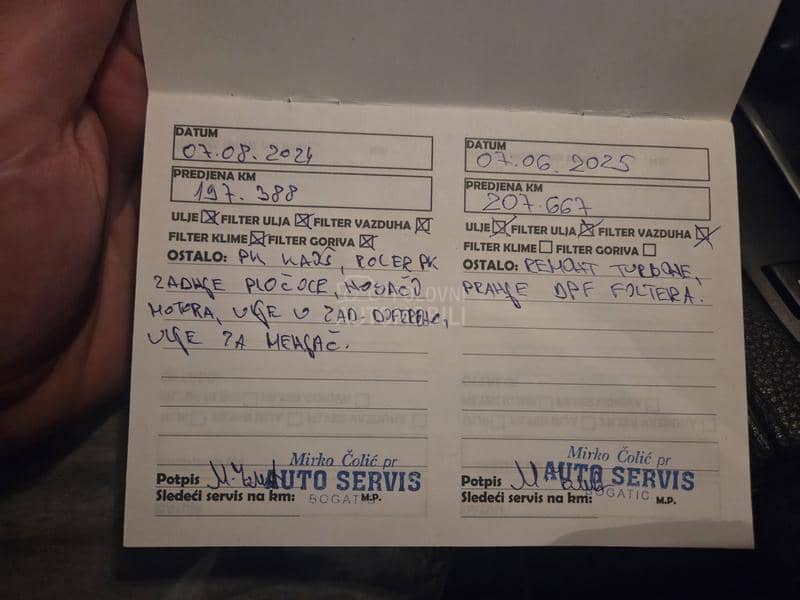 DATUM
07.08.2024
PREDJENA KM
197.388
ULJE FILTER ULJA FILTER VAZDUHA
FILTER KLIME FILTER GORIVA
OSTALO: PK KAIŠ, ROLER PK
ZADNJE PLOČICE, NOSAČ
MOTORA, ULJE U ZAD.
ULJE ZA MENJAČ.
Potpis
Mirko Čolić pr
AUTO SERVIS
Sledeći servis na km:
BOGATIĆ M.P.
DATUM
07.06.2025
PREDJENA KM
207.667
ULJE FILTER ULJA FILTER VAZDUHA
FILTER KLIME FILTER GORIVA
OSTALO: REMONT TURBINE,
PRANJE DPF FILTERA.
Potpis
Mirko Čolić pr
AUTO SERVIS
Sledeći servis na km:
BOGATIĆ M.P.